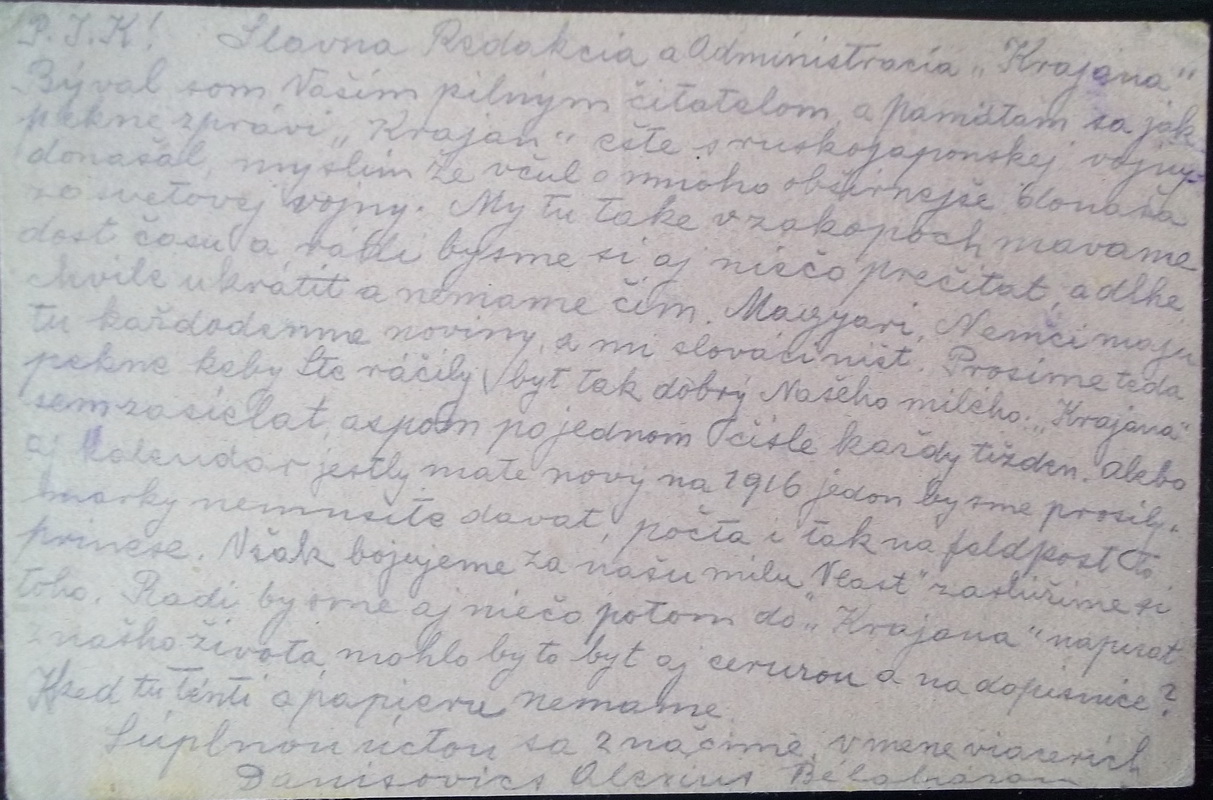 P.I.K! Slavna Redakcia a Administracia „Krajana"
Býval som Vaším pilným čitatelom, a pamätam sa jak
pekne zprávi „Krajan" ešte s ruskojaponskej vojny
donašal, myslím že včul o mnoho obširnejše donaša
zo svetovej vojny. My tu take v zakopoch mavame
dost času a rádi bysme si aj niečo prečitat, a dlhe
chvile ukrátit a nemame čím. Magyari, Nemci maju
tu každodenne noviny, a mi slováci ništ. Prosime teda
pekne keby Ste ráčily byt tak dobrý Našeho milého „Krajana"
sem zasielat, aspom po jednom čisle každy tižden. Alebo
aj kalendar jestly mate nový na 1916 jedon by sme prosily.
marky nemusite davat, počta i tak na feldpost to
prinese. Však bojujeme za našu milu „Vlast" zaslúžime si
toho. Radi by sme aj niečo potom do „Krajana" napisat
z našho života, mohlo by to byt aj ceruzou a na dopisnice?
Ked tu tenti a papieru nemame.
Súplnou uctou sa značime, v mene viacerich
Danisovics Alexius